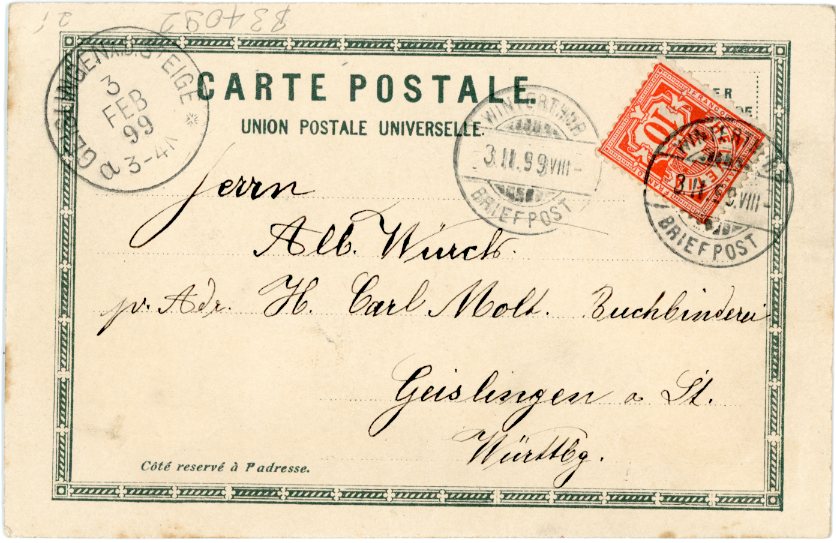 CARTE POSTALE.
UNION POSTALE UNIVERSELLE.
GEISLINGEN A.D. STEIGE
3
FEB
99
3-4N
WINTERTHUR
3.II.99.VIII-
BRIEFPOST
10
WINTERTHUR
3.II.99.VIII-
BRIEFPOST
Herrn
Alb. Würch.
pr. Adr. H. Carl Molt. Buchbinderei
Geislingen a St.
Württbg.
Côté reservé à l'adresse.